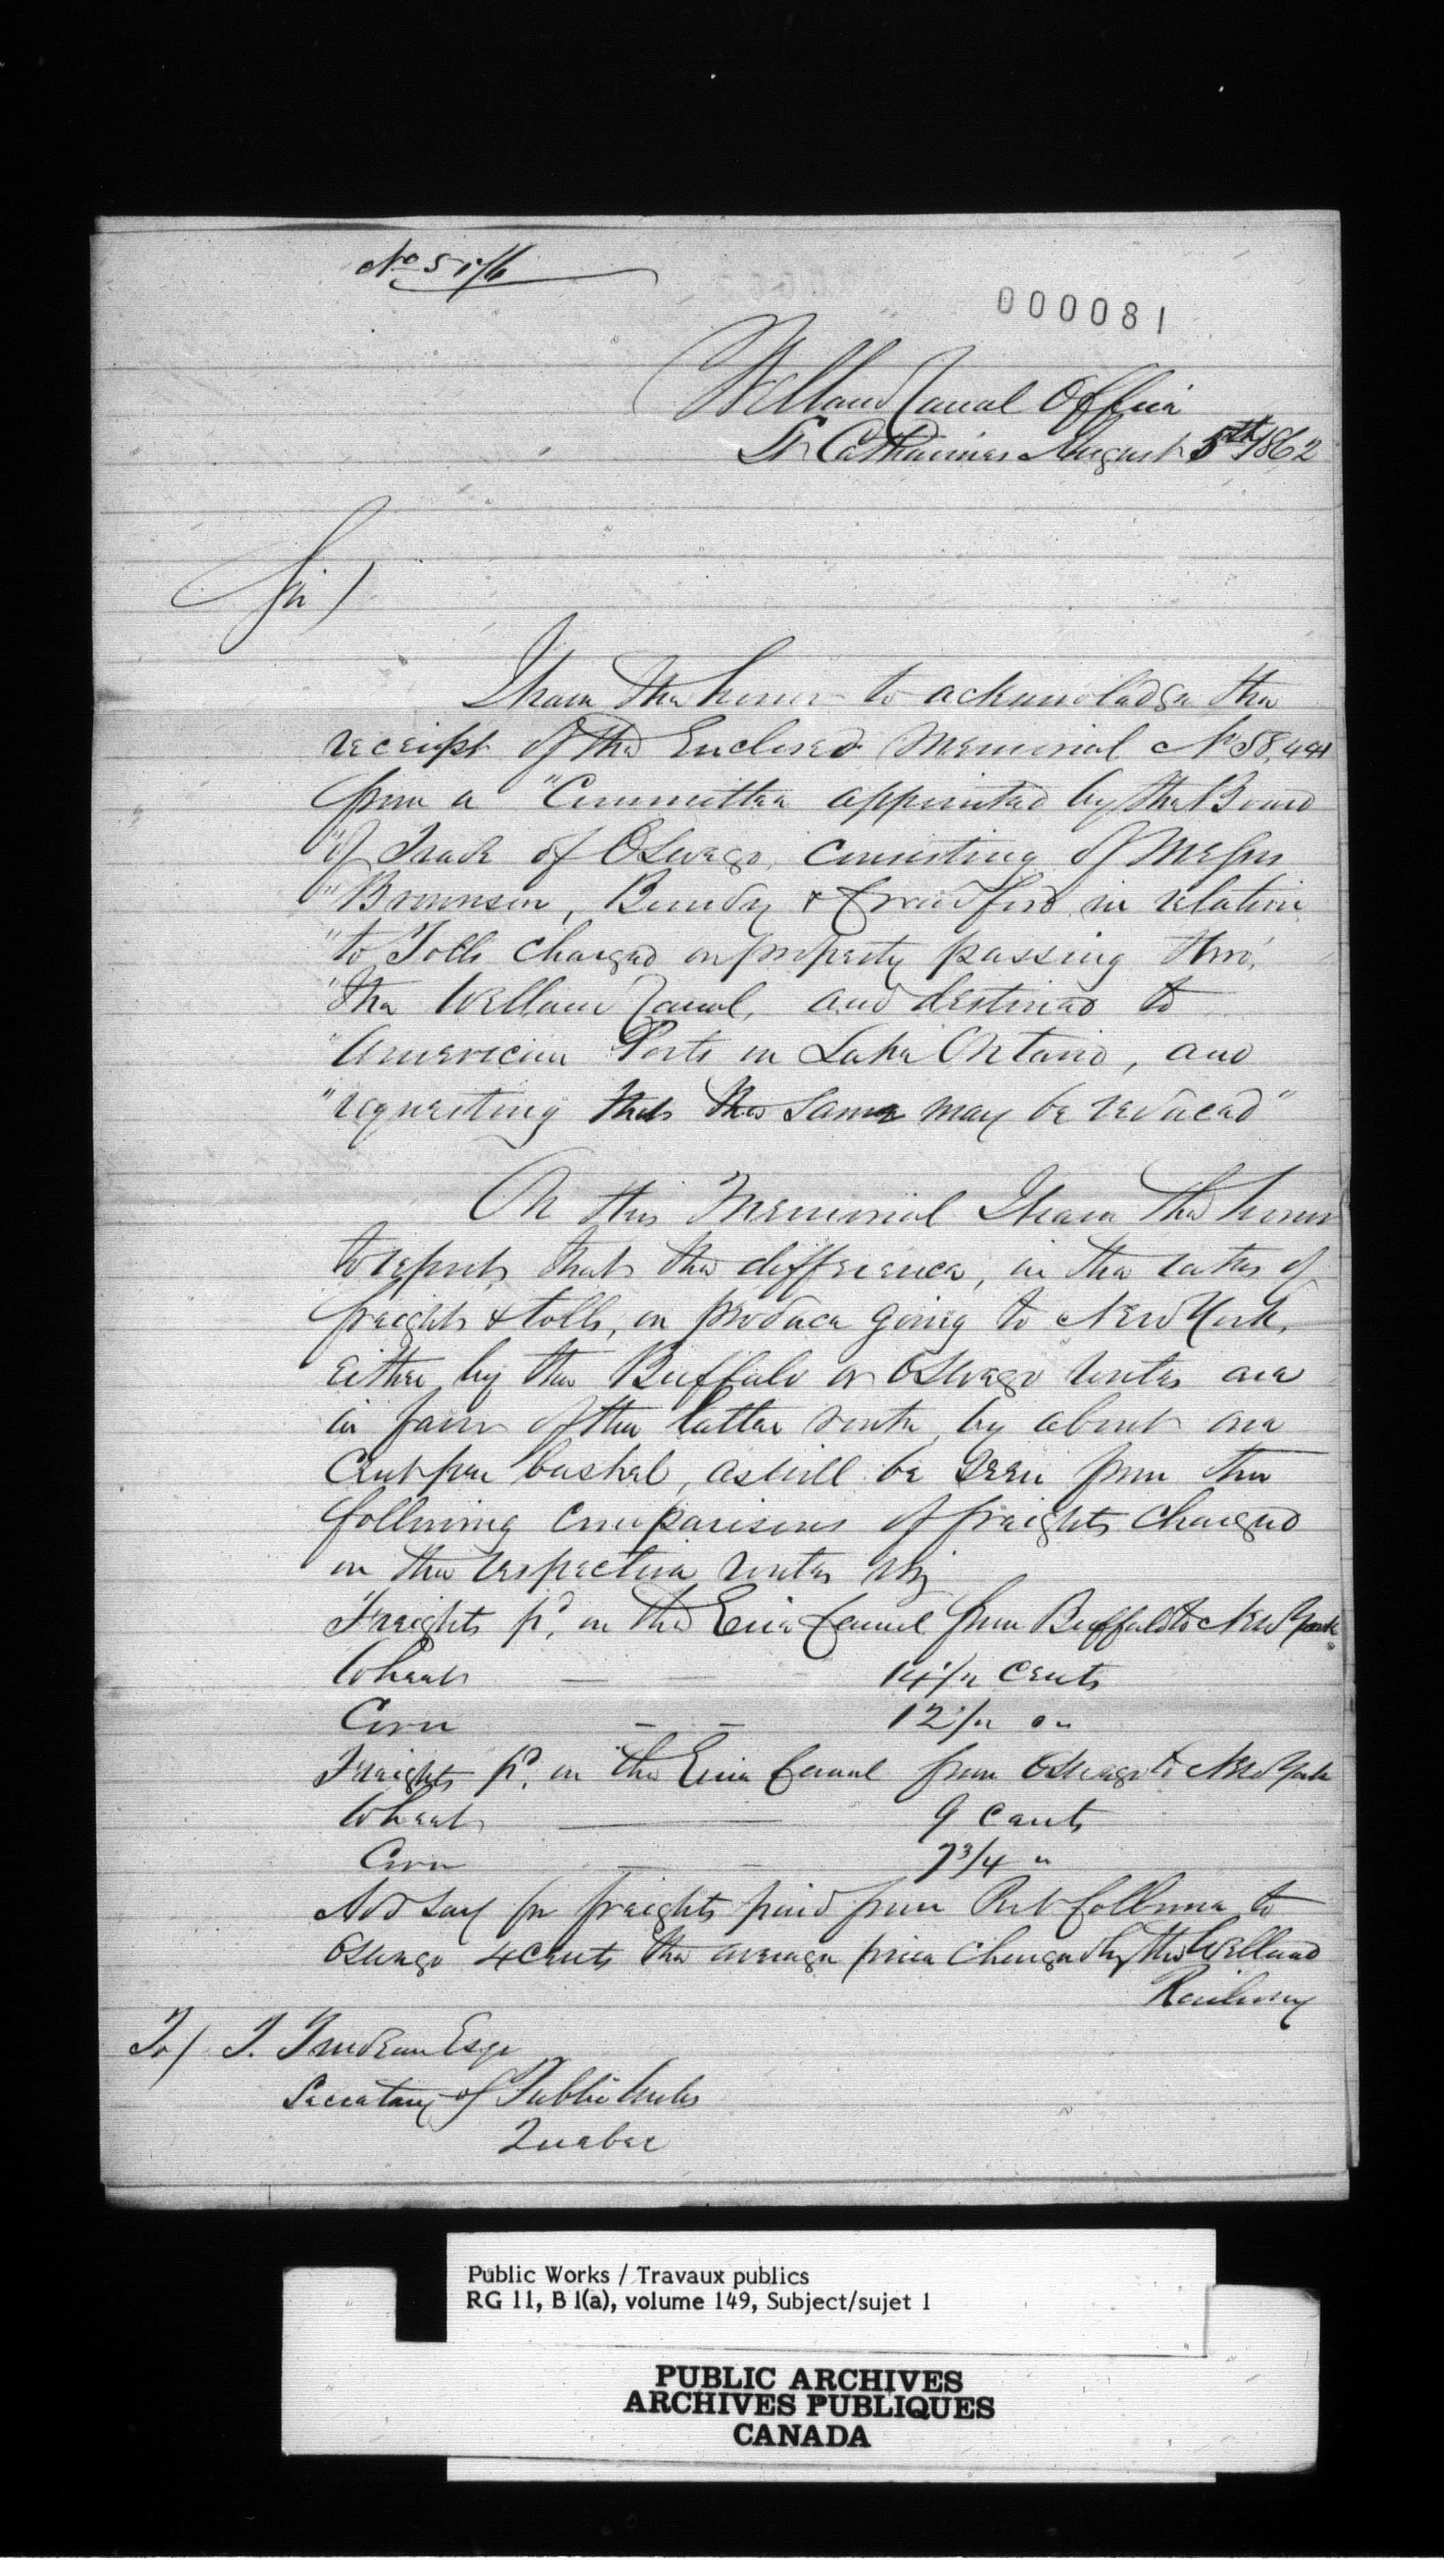 No 5176
000081
Welland Canal Office
St Catharines August 5th 1862
Sir /
I have the honor to acknowledge the
receipt of the Enclosed Memorial No 58,441
from a "Committee appointed by the Board
"of Trade of Oswego, consisting of Messrs
"Bronnson, Bunday & Crawford in relation
"to Tolls charged on property passing thro'
"the Welland Canal, and destined to
"American Ports on Lake Ontario, and
"requesting that the same may be reduced"
On this Memorial I have the honor
to report, that the difference, in the rates of
freights & tolls, on produce going to New York,
either by the Buffalo or Oswego routes are
in favor of the latter route, by about one
Cent per bushel, as will be seen from the
following comparisons of freights charged
on the respective routes viz
Freights pd. on the Erie Canal from Buffalo to New York
Wheat — — - 14 1/2 cents
Corn — — 12 1/2 "
Freights pd. on the Erie Canal from Oswego to New York
Wheat — 9 cents
Corn — — 7 3/4 "
Add say for freights paid from Port Colborne to
Oswego 4 cents the average price charged by the Welland
Railway
To / T. Trudeau Esqr
Secretary of Public Works
Quebec
Public Works / Travaux publics
RG 11, B 1(a), volume 149, Subject/sujet 1
PUBLIC ARCHIVES
ARCHIVES PUBLIQUES
CANADA